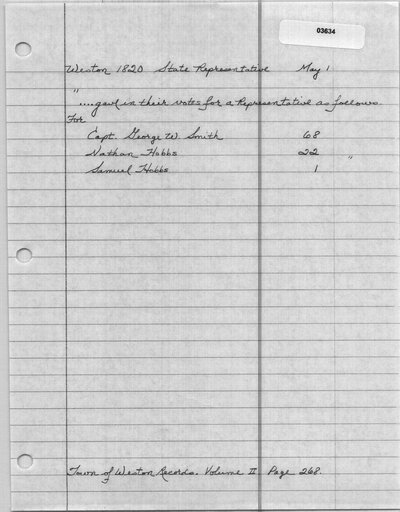 03634
Weston 1820 State Representative May 1
"
....gave in their votes for a Representative as follows.
For
Capt. George W. Smith 68
Nathan Hobbs 22 "
Samuel Hobbs 1
Town of Weston Records. Volume II. Page 268.